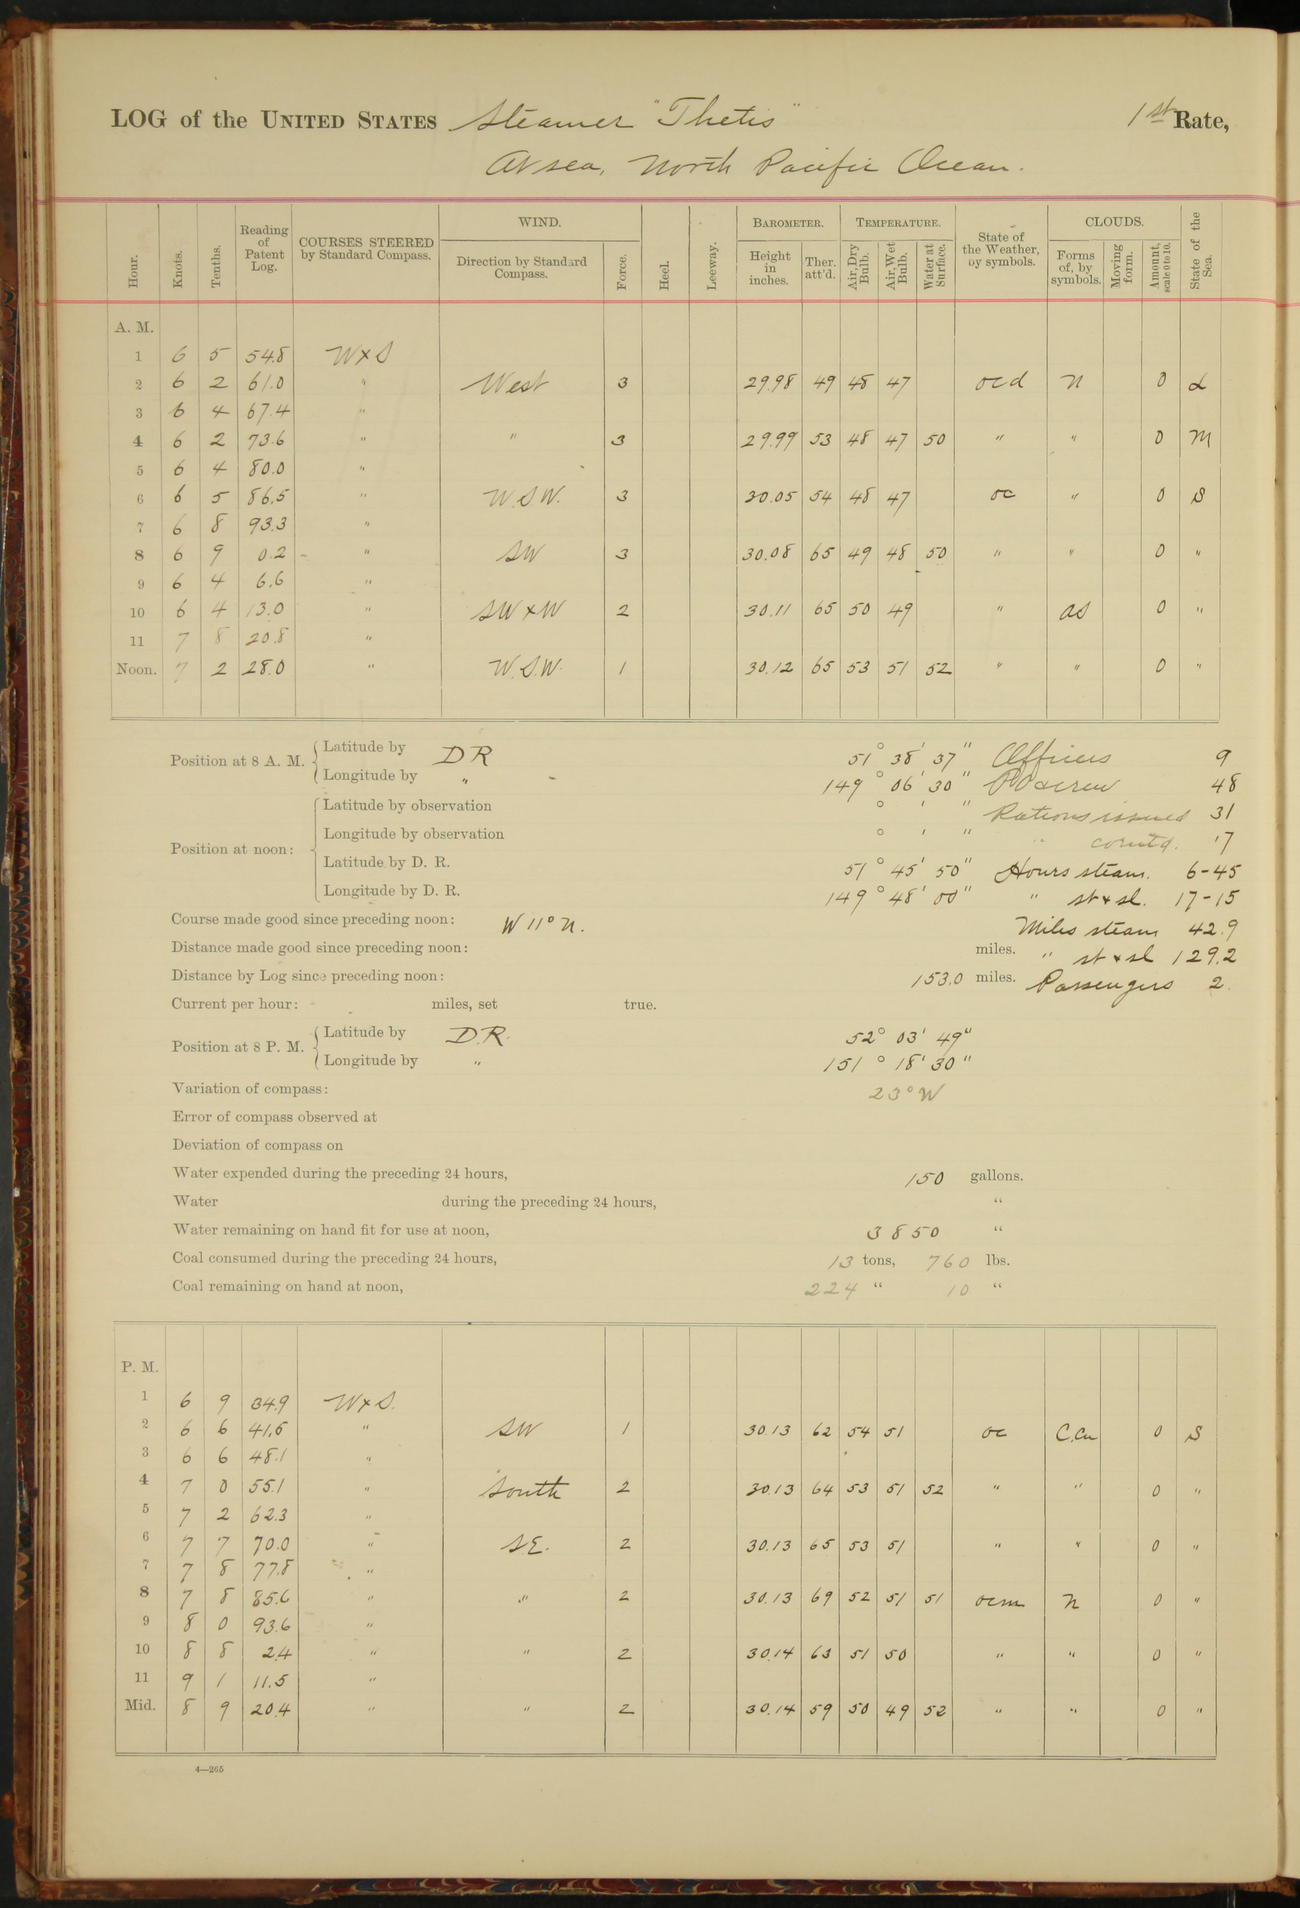 LOG of the UNITED STATES Steamer "Thetis" 1st Rate,
At sea, North Pacific Ocean.
Hour. Knots. Tenths. Reading of Patent Log. COURSES STEERED by Standard Compass. WIND. Direction by Standard Compass. Force. Heel. Leeway. BAROMETER. Height in inches. Ther. att'd. TEMPERATURE. Air, Dry Bulb. Air, Wet Bulb. Water at Surface. State of the Weather, by symbols. CLOUDS. Forms of, by symbols. Moving form. Amount, scale 0 to 10. State of the Sea.
A. M.
1 6 5 54.8 WxS
2 6 2 61.0 " West 3 29.98 49 48 47 ocd N 0 L
3 6 4 67.4 "
4 6 2 73.6 " " 3 29.99 53 48 47 50 " " 0 M
5 6 4 80.0 "
6 6 5 86.5 " W.S.W. 3 30.05 54 48 47 oc " 0 S
7 6 8 93.3 "
8 6 9 0.2 " SW 3 30.08 65 49 48 50 " " 0 "
9 6 4 6.6 "
10 6 4 13.0 " SWxW 2 30.11 65 50 49 " as 0 "
11 7 8 20.8 "
Noon. 7 2 28.0 " W.S.W. 1 30.12 65 53 51 52 " " 0 "
Position at 8 A. M. Latitude by DR 51° 38' 37" Officers 9
Longitude by " 149° 06' 30" PO & crew 48
Position at noon: Latitude by observation ° ' " Rations issued 31
Longitude by observation ° ' " " comtd. 17
Latitude by D. R. 51° 45' 50" Hours steam. 6-45
Longitude by D. R. 149° 48' 00" " st & sl. 17-15
Course made good since preceding noon: W 11° N. Miles steam 42.9
Distance made good since preceding noon: miles. " st & sl 129.2
Distance by Log since preceding noon: 153.0 miles. Passengers 2
Current per hour: miles, set true.
Position at 8 P. M. Latitude by D.R. 52° 03' 49"
Longitude by " 151° 18' 30"
Variation of compass: 23° W
Error of compass observed at
Deviation of compass on
Water expended during the preceding 24 hours, 150 gallons.
Water during the preceding 24 hours, "
Water remaining on hand fit for use at noon, 3850 "
Coal consumed during the preceding 24 hours, 13 tons, 760 lbs.
Coal remaining on hand at noon, 224 " 10 "
P. M.
1 6 9 34.9 WxS.
2 6 6 41.5 " SW 1 30.13 62 54 51 oc C.Cu 0 S
3 6 6 48.1 "
4 7 0 55.1 " South 2 30.13 64 53 51 52 " " 0 "
5 7 2 62.3 "
6 7 7 70.0 " SE. 2 30.13 65 53 51 " " 0 "
7 7 8 77.8 "
8 7 8 85.6 " " 2 30.13 69 52 51 51 ocm N 0 "
9 8 0 93.6 "
10 8 8 2.4 " " 2 30.14 63 51 50 " " 0 "
11 9 1 11.5 "
Mid. 8 9 20.4 " " 2 30.14 59 50 49 52 " " 0 "
4—265